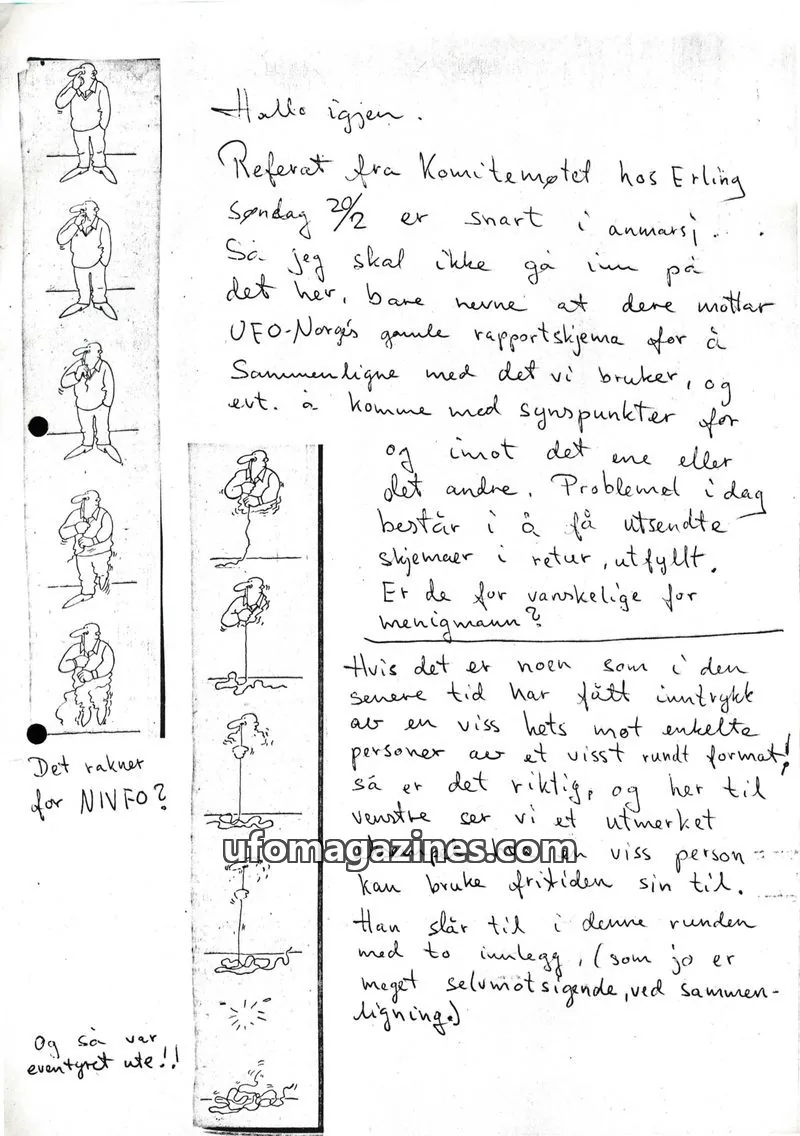 Hallo igjen.
Referat fra Komitemøtet hos Erling
søndag 20/2 er snart i anmarsj...
Så jeg skal ikke gå inn på
det her, bare nevne at dere mottar
UFO-Norges gamle rapportskjema for å
Sammenligne med det vi bruker, og
evt. å komme med synspunkter for
og imot det ene eller
det andre. Problemet i dag
består i å få utsendte
skjemaer i retur, utfyllt.
Er de for vanskelige for
menigmann?
Hvis det er noen som i den
senere tid har fått inntrykk
av en viss hets mot enkelte
personer av et visst rundt format!
så er det riktig, og her til
venstre ser vi et utmerket
en viss person
kan bruke fritiden sin til.
Han slår til i denne runden
med to innlegg, (som jo er
meget selvmotsigende, ved sammen-
ligning.)
Det rakner
for NIVFO?
Og så var
eventyret ute!!
ufomagazines.com